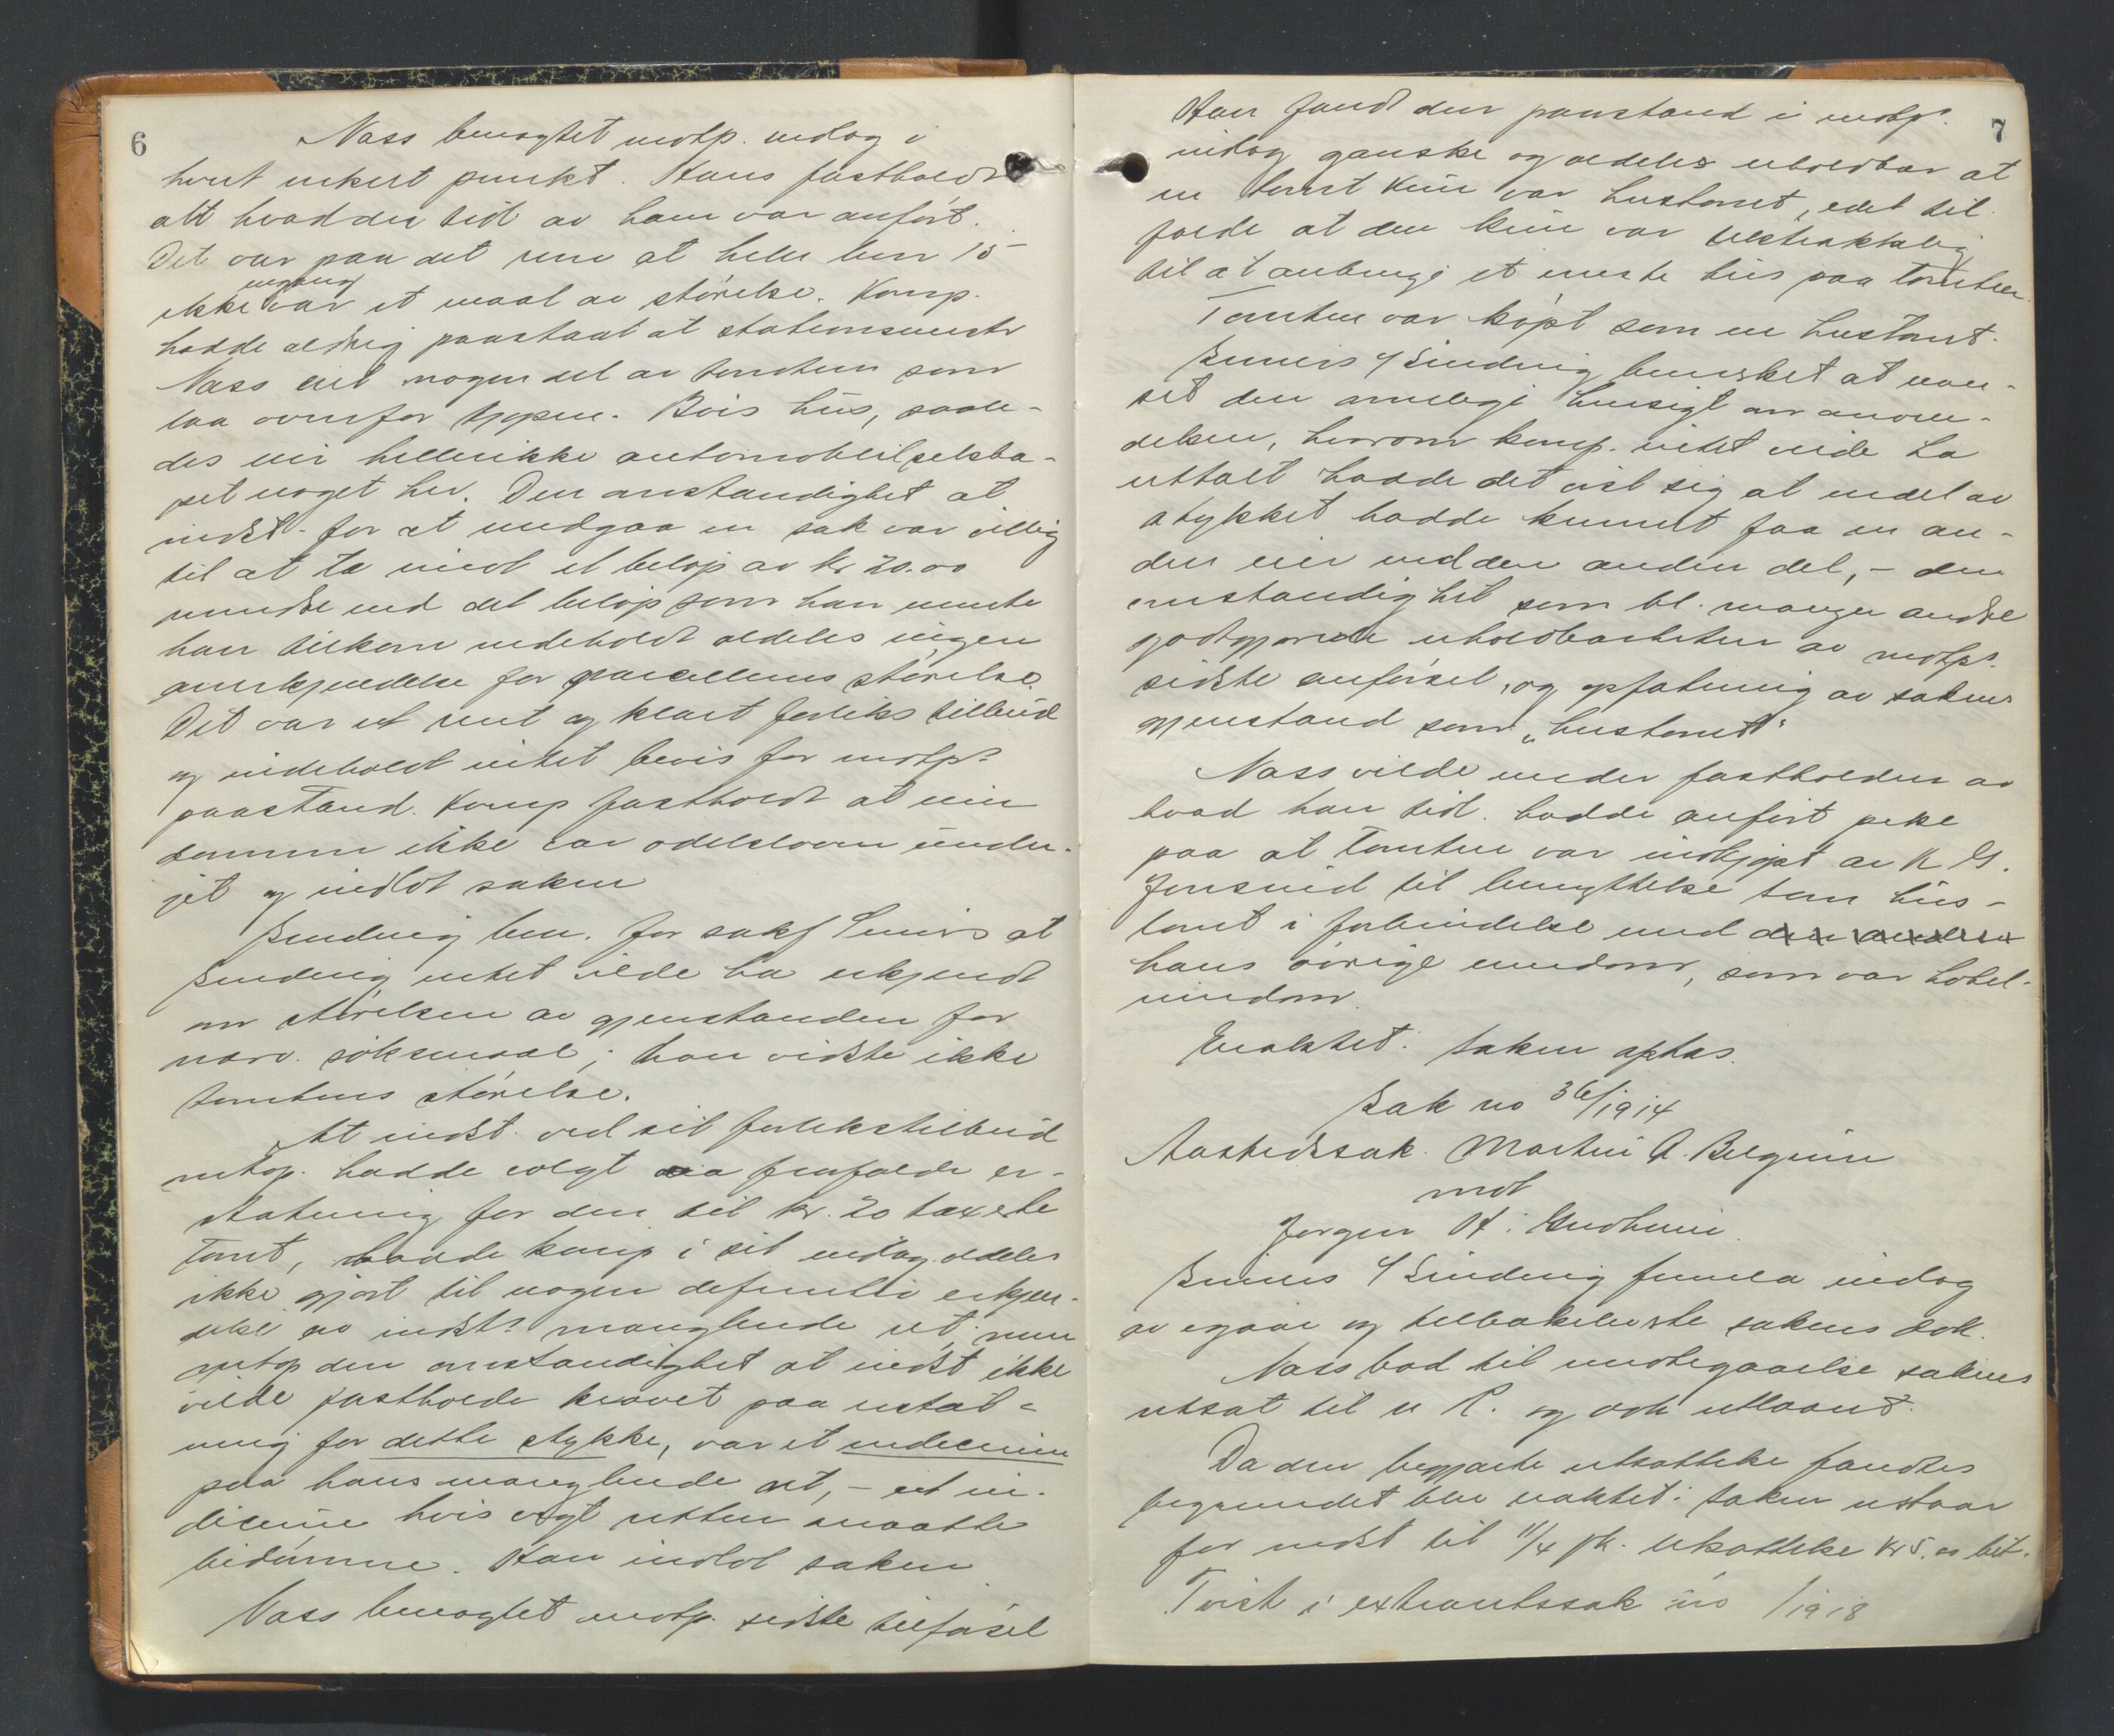 6
Næss benegtet motp. indlæg i
hvert enkert punkt. Hans fastholdt
alt hvad der tidl av ham var anført.
Det var paa det rene at heller bnr 15
ikke engang var et maal av størelse. Komp.
hadde aldrig paastaat at stationsmester
Næss eiet nogen del av tomten som
laa ovenfor Bøis hus, saale-
des eier hellerikke automobilselska-
pet noget her. Den omstændighet at
indst. for at undgaa en sak var villig
til at ta imot et beløp av kr 20.00
mindre end det beløp som han mente
han tilkom indeholdt aldeles ingen
anerkjendelse for parcellens størelse.
Det var et rent og klart forliks tilbud
og indeholdt intet bevis for motp's
paastand. Komp fastholdt at ein
dommen ikke var odelsloven under-
git og indlot saken
Sinding bem. for sakf Smirs at
Sinding intet vilde ha erkjendt
om størelsen av gjenstanden for
nærv. søksmaal; han vidste ikke
tomtens størelse.
At indst. ved sit forlikstilbud
netop. hadde valgt aa frafalde er-
statning for den til kr. 20 taxerte
tomt, hadde komp i sit indlæg aldeles
ikke gjort til nogen definitiv erkjen-
delse av indst's manglende ret, men
netop den omstændighet at indst ikke
vilde fastholde kravet paa erstat-
ning for dette stykke, var et indicium
paa hans manglende ret, - et in-
dicium hvis vegt retten maatte
bedømme. Han indlot saken
Næss benegtet motp. sidste tilførsel
7
Han fandt den paastand i motp's
indlæg ganske og aldeles uholdbar at
en tomt kun var hustomt, i det til-
fælde at den kun var tilstrækkelig
til at anbringe et eneste hus paa tomten.
Tomten var kjøpt som en hustomt.
Smirs v/ Sinding bemerket at uan-
set den mulige hensigt om anven-
delsen, hvorom komp. intet vilde ha
uttalt hadde det vist sig at endel av
stykket hadde kunnet faa en an-
den eier end den anden del, - den
omstændighet som bl. mange andre
godtgjøre uholdbarheten av motp's
sidste anførsel, og opfatning av sakens
gjenstand som "hustomt"
Næss vilde under fastholden av
hvad han tidl. hadde anført peke
paa at tomten var indkjøpt av K G.
Jonsrud til benyttelse som hus-
tomt i forbindelse med den anden
hans øvrige eiendom, som var hotel-
eiendom.
Eraktet: Saken optas.
Sak no 36/1914
Aastedssak. Martin A. Belgum
mot
Jørgen H. Gudheim.
Smirs v/ Sinding fremla indlæg
av igaar og tilbakeleverte sakens dok.
Næss bad til imøtegaaelse saken
utsat til n R. og dok utlaant.
Da den begjærte utsættelse fandtes
begrundet blev eraktet: Saken utstaar
for indst til 11/4 fk. Utsættelse kr 5.00 bet.
Tvist i extraretssak no /1918